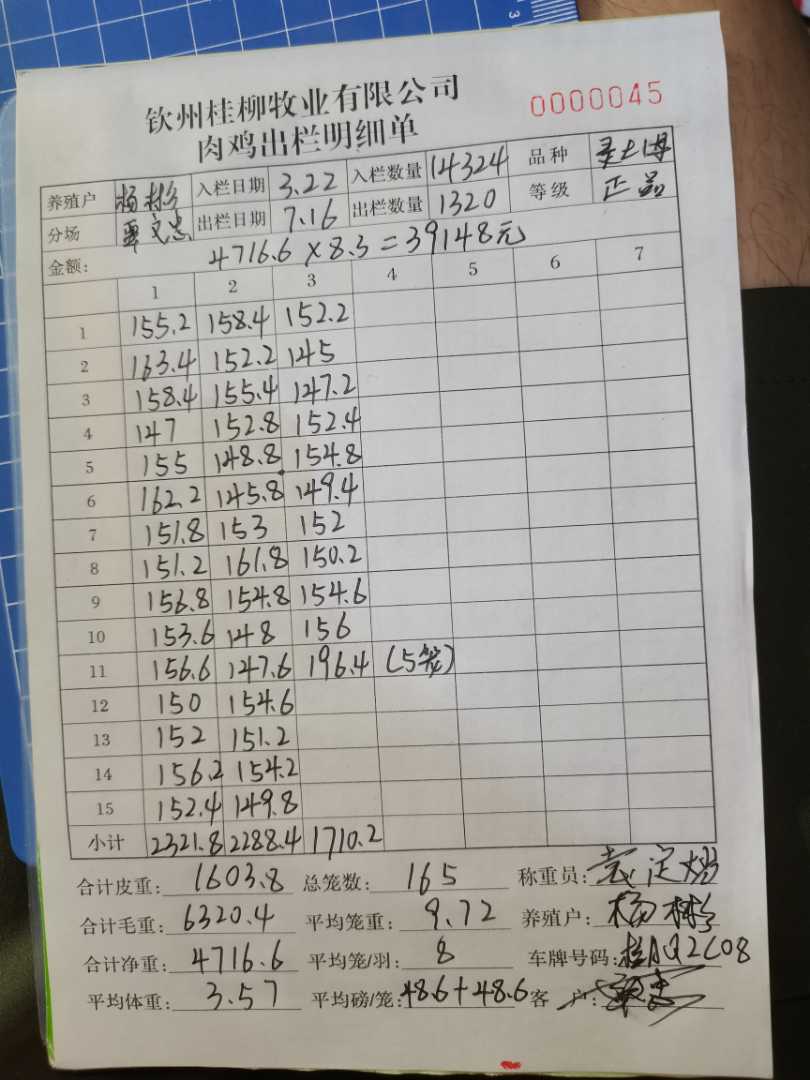 钦州桂柳牧业有限公司
肉鸡出栏明细单 0000045
养殖户 杨彬 入栏日期 3.22 入栏数量 14324 品种
分场 覃文忠 出栏日期 7.16 出栏数量 1320 等级 正品
金额: 4716.6×8.3=39148元
1 2 3 4 5 6 7
1 155.2 158.4 152.2
2 163.4 152.2 145
3 158.4 155.4 147.2
4 147 152.8 152.4
5 155 148.8 154.8
6 162.2 145.8 149.4
7 151.8 153 152
8 151.2 161.8 150.2
9 156.8 154.8 154.6
10 153.6 148 156
11 156.6 147.6 196.4 (5笼)
12 150 154.6
13 152 151.2
14 156.2 154.2
15 152.4 149.8
小计 2321.8 2288.4 1710.2
合计皮重: 1603.8 总笼数: 165 称重员:
合计毛重: 6320.4 平均笼重: 9.72 养殖户: 杨彬
合计净重: 4716.6 平均笼/羽: 8 车牌号码:
平均体重: 3.57 平均磅/笼: 48.6+48.6 客 户: